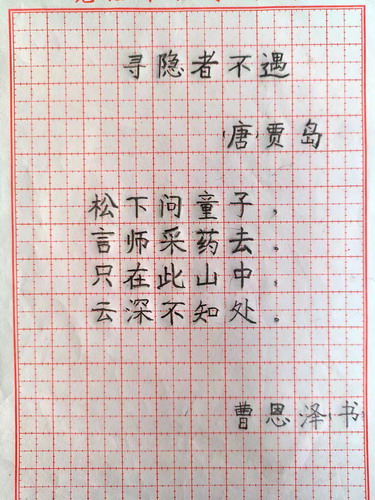 寻隐者不遇
(唐)贾岛
松下问童子，
言师采药去。
只在此山中，
云深不知处。
曹恩泽书